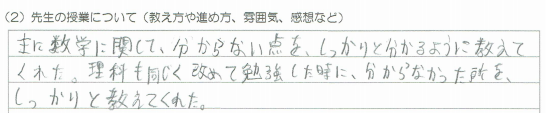 (2) 先生の授業について（教え方や進め方、雰囲気、感想など）
主に数学に関して、分からない点を、しっかりと分かるように教えて
くれた。理科も同じく改めて勉強した時に、分からなかった所を、
しっかりと教えてくれた。